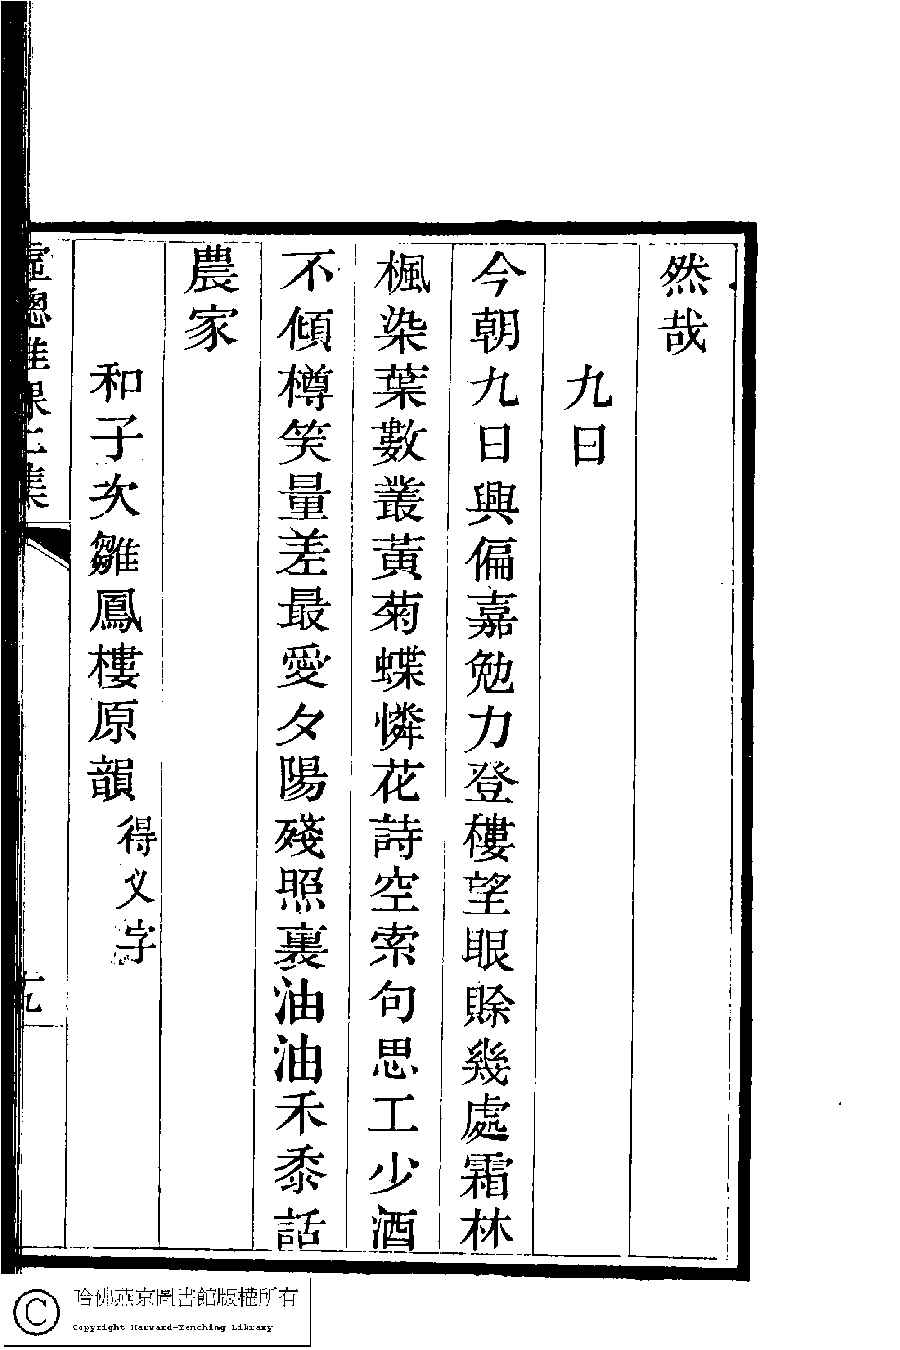 然哉
九日
今朝九日興偏嘉勉力登樓望眼賒幾處霜林
楓染葉數叢黃菊蝶憐花詩空索句思工少酒
不傾樽笑量差最愛夕陽殘照裏油油禾黍話
農家
和子次雛鳳樓原韻
得义字
九
哈佛燕京圖書館版權所有
Copyright Harvard-Yenching Library